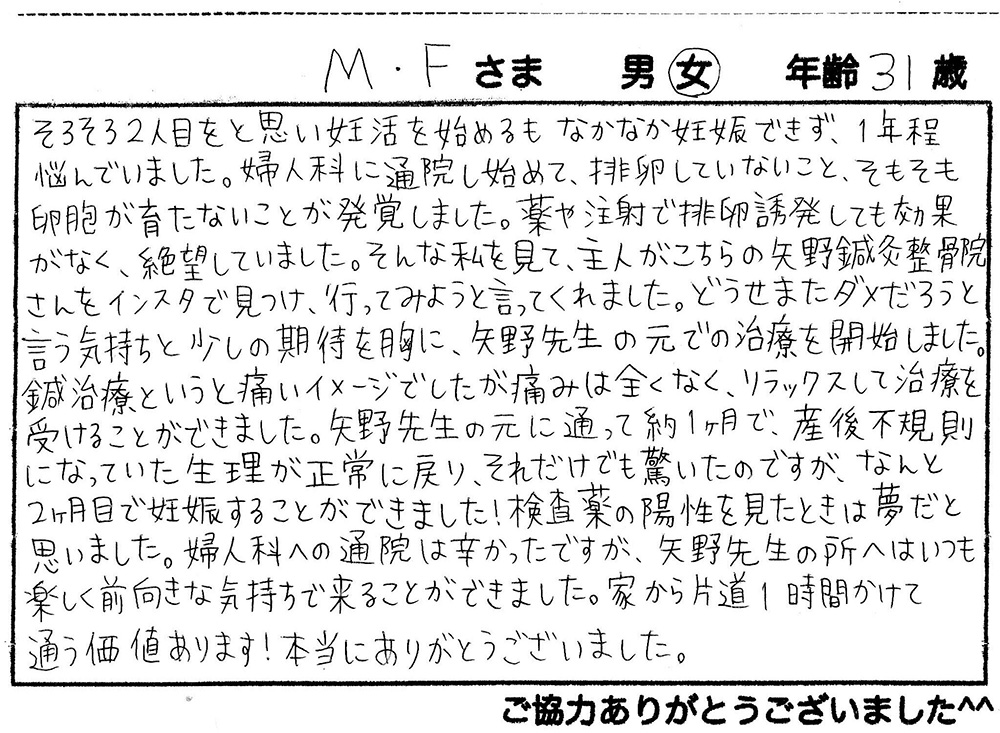 M・F さま 男 女 年齢 31 歳
そろそろ2人目をと思い妊活を始めるも なかなか妊娠できず、1年程
悩んでいました。婦人科に通院し始めて、排卵していないこと、そもそも
卵胞が育たないことが発覚しました。薬や注射で排卵誘発しても効果
がなく、絶望していました。そんな私を見て、主人がこちらの矢野鍼灸整骨院
さんをインスタで見つけ、行ってみようと言ってくれました。どうせまたダメだろうと
言う気持ちと少しの期待を胸に、矢野先生の元での治療を開始しました。
鍼治療というと痛いイメージでしたが痛みは全くなく、リラックスして治療を
受けることができました。矢野先生の元に通って約1ヶ月で、産後不規則
になっていた生理が正常に戻り、それだけでも驚いたのですが、なんと
2ヶ月目で妊娠することができました!検査薬の陽性を見たときは夢だと
思いました。婦人科への通院は辛かったですが、矢野先生の所へはいつも
楽しく前向きな気持ちで来ることができました。家から片道1時間かけて
通う価値あります!本当にありがとうございました。
ご協力ありがとうございました^^